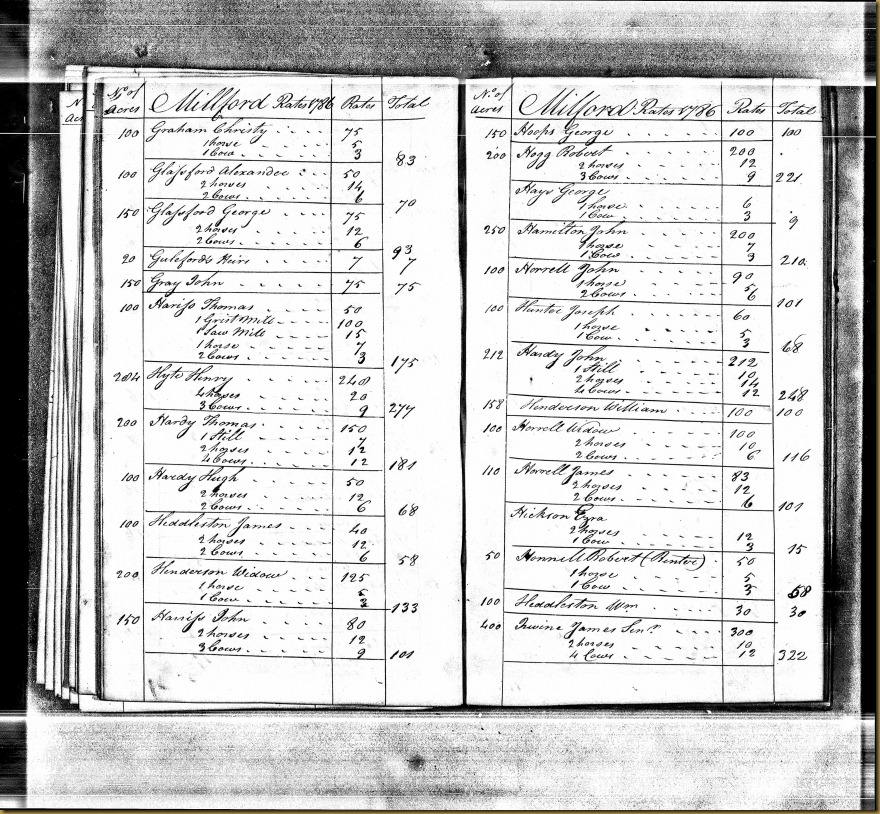 No. of Acres Millford Rates 1786 Rates Total
100 Graham Christy 75
1 horse 5
1 Cow 3 83
100 Glassford Alexander 50
2 horses 14
2 Cows 6 70
150 Glassford George 75
2 horses 12
2 Cows 6 93
20 Guleford's Heirs 7 7
150 Gray John 75 75
100 Hariss Thomas 50
1 Grist Mill 100
1 Saw Mill 15
1 horse 7
2 Cows 3 175
284 Hyte Henry 248
4 horses 20
3 Cows 9 277
200 Hardy Thomas 150
1 Still 7
2 horses 12
4 Cows 12 181
100 Hardy Hugh 50
2 horses 12
2 Cows 6 68
100 Heddleston James 40
2 horses 12
2 Cows 6 58
200 Henderson Widow 125
1 horse 5
1 Cow 3 133
150 Hariss John 80
2 horses 12
3 Cows 9 101
No. of Acres Milford Rates 1786 Rates Total
150 Hoops George 100 100
200 Hogg Robert 200
2 horses 12
3 Cows 9 221
Hays George
1 horse 6
1 Cow 3 9
250 Hamilton John 200
1 horse 7
1 Cow 3 210
100 Horrell John 90
1 horse 5
2 Cows 6 101
100 Hunter Joseph 60
1 horse 5
1 Cow 3 68
212 Hardy John 212
1 Still 10
2 horses 14
4 Cows 12 248
158 Henderson William 100 100
100 Horrell Widow 100
2 horses 10
2 Cows 6 116
110 Horrell James 83
2 horses 12
2 Cows 6 101
Hickson Ezra
2 horses 12
1 Cow 3 15
50 Honnell Robert (Renter) 50
1 horse 5
1 Cow 3 58
100 Heddleston Wm 30 30
400 Irwine James Senr. 300
2 horses 10
4 Cows 12 322